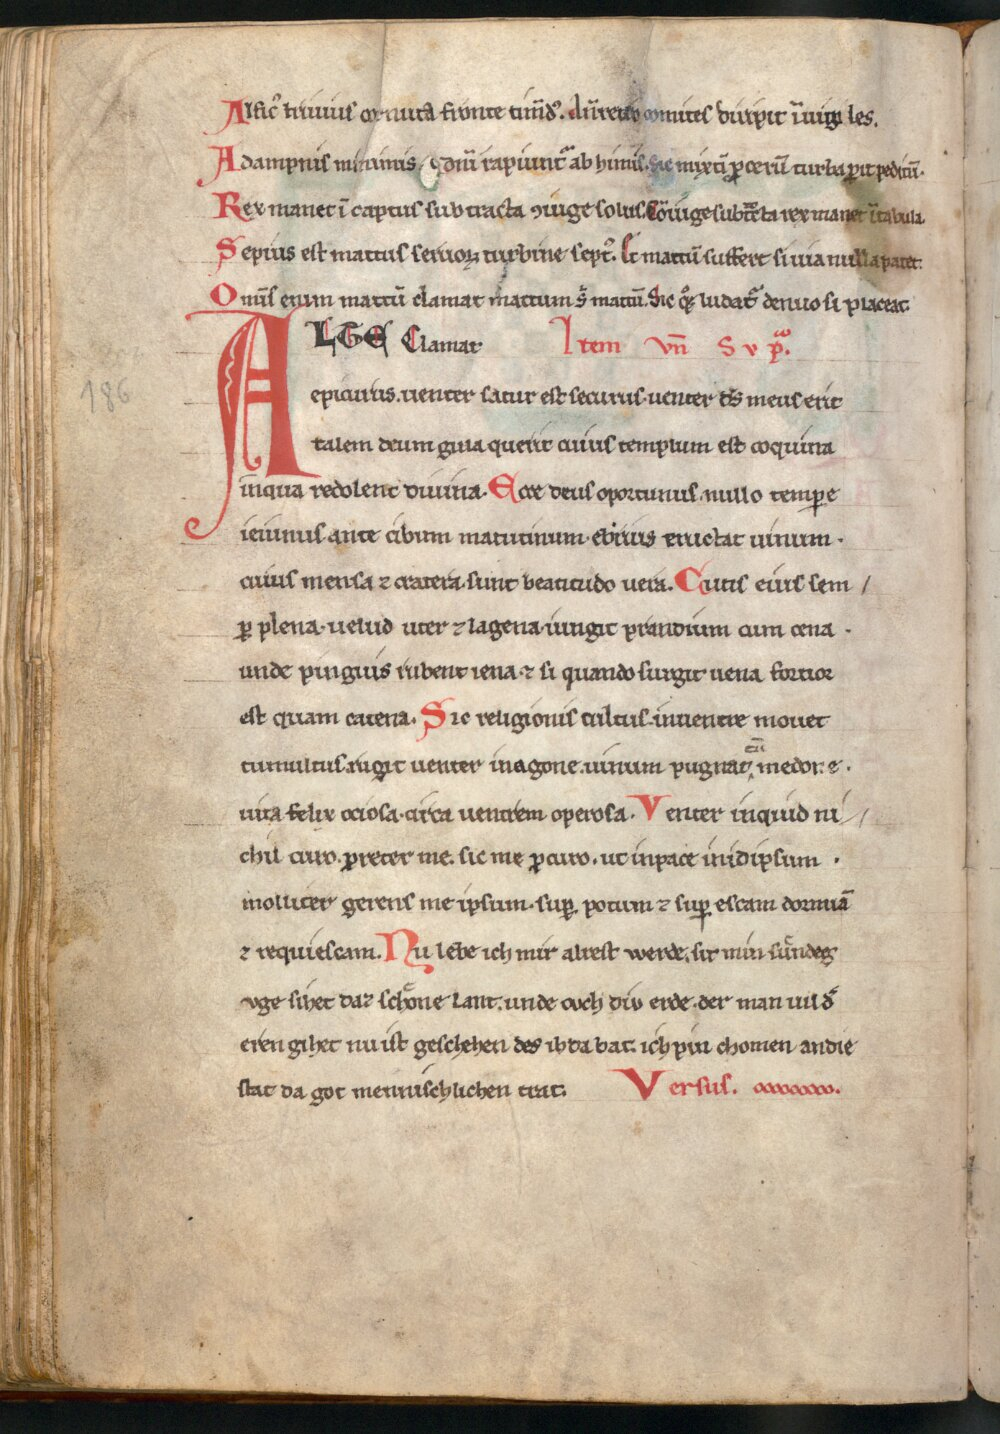 Alfic᷒ triuius cornuta fronte timid᷒. dū retro comites diripit īuigiles.
A dampnis minimis, & dm̄ rapiunt᷑ ab himis. sic mixtī ꝓcerū turba ꝑit peditū.
Rex manet ī captus subtracta ꝯiuge solus. Cōiuge subtͣcta rex manet ī tabula
Sepius est mattus seruoꝝ turbine sept᷒. Et mattū suffert si uia nulla patet.
Om̄s enim mattū clamat mattum sꝫ mattū. Sic qꝫ ludat᷑ denuo si placeat.
ALTE Clamat Item vn̄ S v pͣ.
epicurus. uenter satur est securus. uenter ds̄ meus erit
talem deum gula querit cuius templum est coquina
in qua redolent diuina. Ecce deus oportunus. nullo tempore
ieiunus. ante cibum matutinum. ebrius eructat uinum.
cuius mensa ⁊ cratera. sunt beatitudo uera. Cutis eius sem /
ꝑ plena. uelud uter ⁊ lagena. iungit prandium cum cena.
unde pinguis rubent iena. ⁊ si quando surgit uena fortior
est quam catena. Sic religionis cultus. in uentre mouet
tumultus. rugit uenter in agone. uinum pugnat cū medone.
uita felix ociosa. circa uentrem operosa. Venter inquid ni /
chil curo. preter me. sic me ꝓcuro. ut in pace in id ipsum.
molliter gerens me ipsum. suꝑ potum ⁊ suꝑ escam dormiā
⁊ requiescam. Nu lebe ich mir alrest werde. sit min sundeg
vge sihet daz schoͤne lant. unde ouch div erde. der man uil dͤ
eren gihet nu ist geschehen des ih da bat. ich pin chomen an die
stat da got mennischlichen trat. Versus.